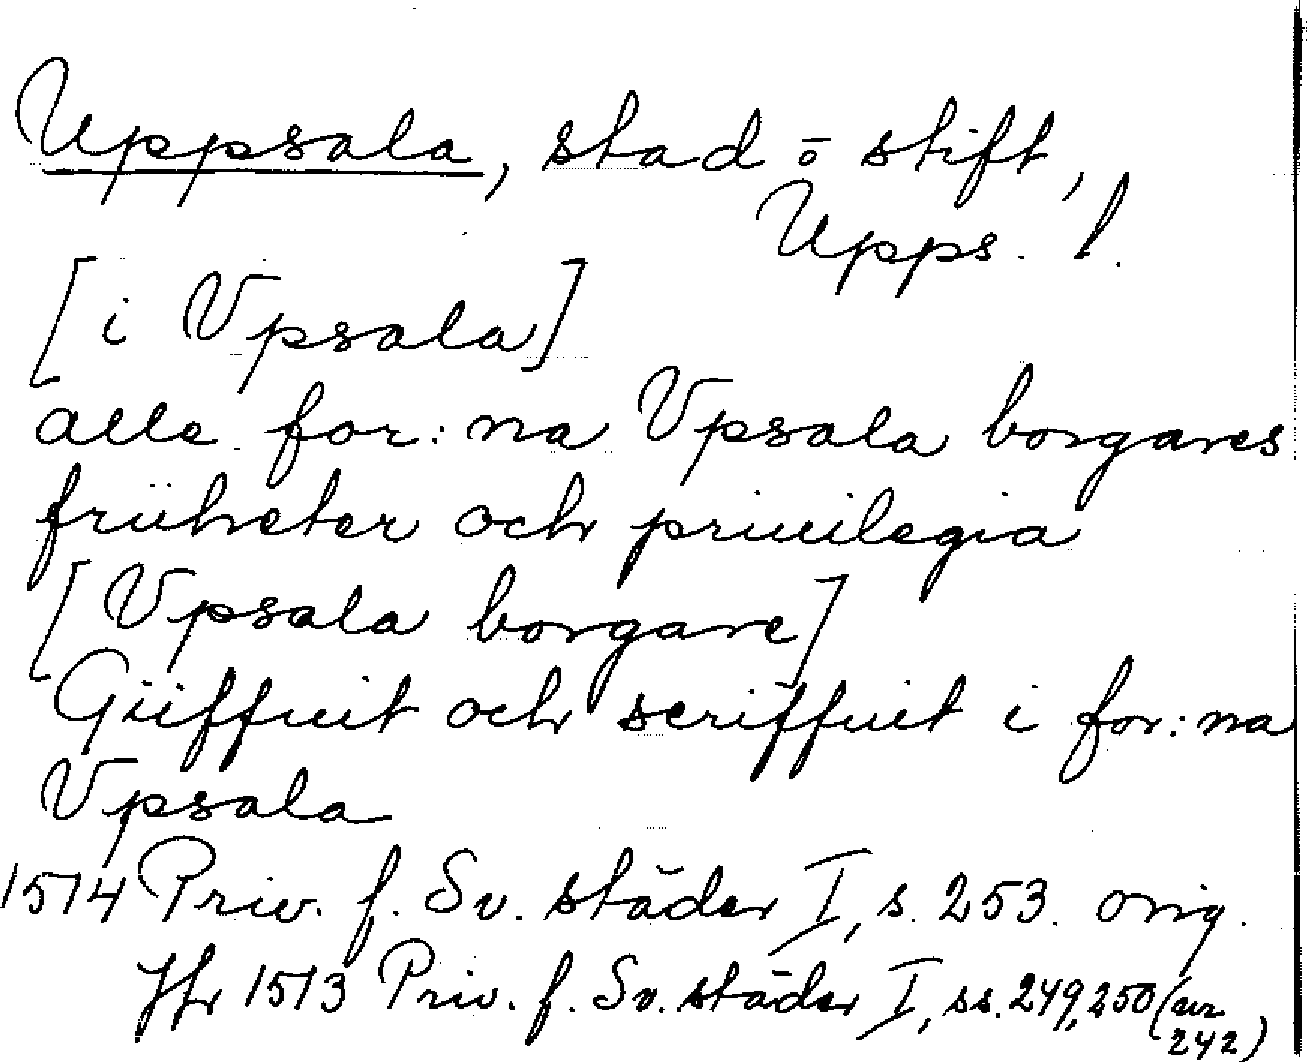 Uppsala, stad o stift,
Upps. l.
[i Vpsala]
alle for:na Vpsala borgares
friiheter och priuilegia
[Vpsala borgare]
Giiffuit och scriffuit i for:na
Vpsala
1514 Priv. f. Sv. städer I, s. 253. orig.
Jfr 1513 Priv. f. Sv. städer I, ss. 249, 250 (nr
242)